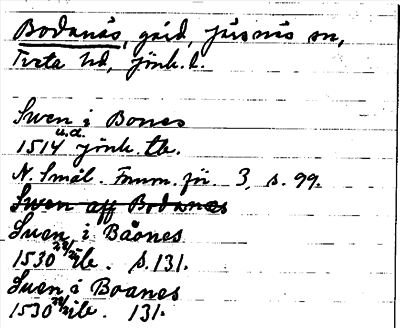 Bodanäs, gård, Järsnäs sn,
Tveta hd, Jönk. l.
Swen i Bones
1514 u.d. Jönk. tb.
N. Smål. Fornm. för. 3, s. 99.
Swen aff Bodanes
Suen i Bäönes
1530 ib. s. 131.
Suen i Boanes
1530 ib. 131.